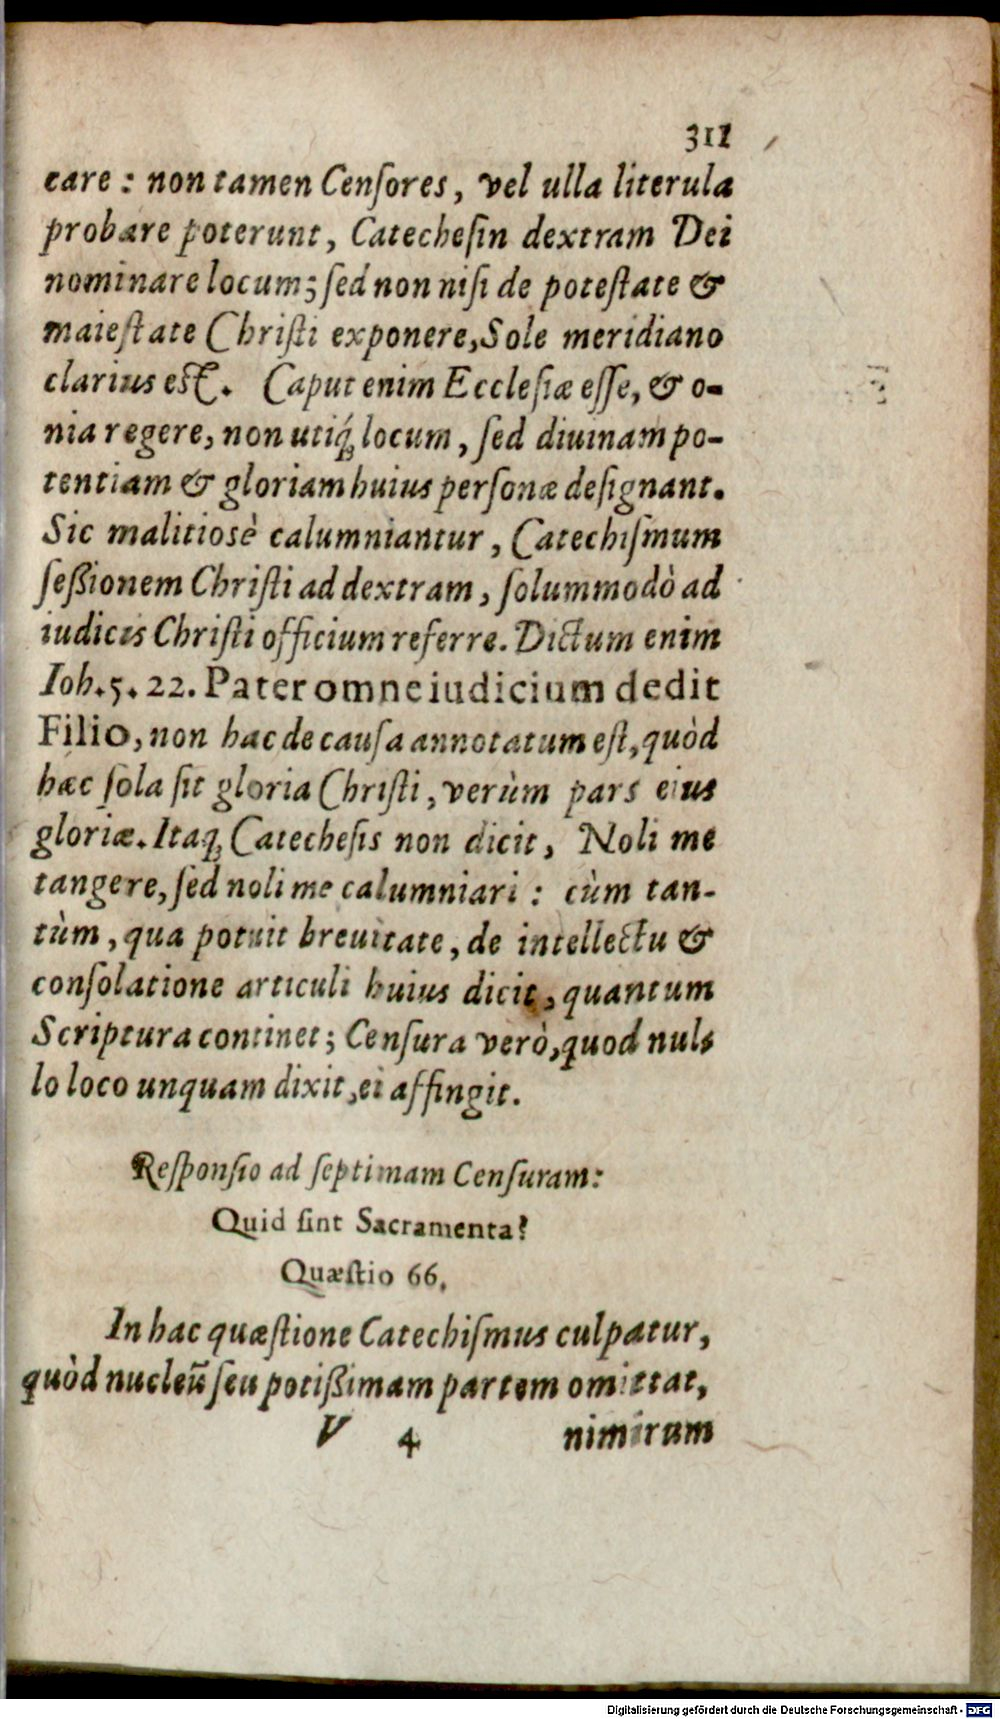 311
care: non tamen Censores, vel ulla literula
probare poterunt, Catechesin dextram Dei
nominare locum; sed non nisi de potestate &
maiestate Christi exponere, Sole meridiano
clarius est. Caput enim Ecclesiæ esse, & o-
nia regere, non utiq; locum, sed diuinam po-
tentiam & gloriam huius personæ designant.
Sic malitiosè calumniantur, Catechismum
seßionem Christi ad dextram, solummodò ad
iudicis Christi officium referre. Dictum enim
Ioh. 5. 22. Pater omne iudicium dedit
Filio, non hac de causa annotatum est, quòd
hæc sola sit gloria Christi, verùm pars eius
gloriæ. Itaq; Catechesis non dicit, Noli me
tangere, sed noli me calumniari: cùm tan-
tùm, qua potuit breuitate, de intellectu &
consolatione articuli huius dicit, quantum
Scriptura continet; Censura verò, quod nul-
lo loco unquam dixit, ei affingit.
Responsio ad septimam Censuram:
Quid sint Sacramenta?
Quæstio 66.
In hac quæstione Catechismus culpatur,
quòd nucleū seu potißimam partem omittat,
V 4 nimirum
Digitalisierung gefördert durch die Deutsche Forschungsgemeinschaft - DFG